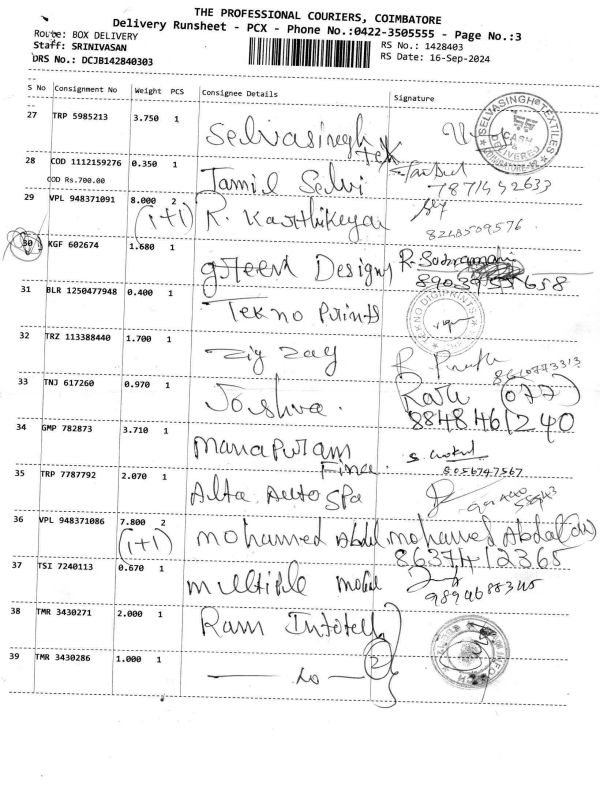 THE PROFESSIONAL COURIERS, COIMBATORE
Delivery Runsheet - PCX - Phone No.:0422-3505555 - Page No.:3
Route: BOX DELIVERY
Staff: SRINIVASAN
DRS No.: DCJB142840303
RS No.: 1428403
RS Date: 16-Sep-2024
S No Consignment No Weight PCS Consignee Details Signature
27 TRP 5985213 3.750 1 Selvasingh Tex
SELVASINGH TEXTILES
CASH
DELIVERED
28 COD 1112159276 0.350 1 Tamil Selvi
COD Rs.700.00
7871442633
29 VPL 948371091 8.000 2 R. Karthikeyan
(1+1)
8248509576
30 KGF 602674 1.680 1 Designs
31 BLR 1250477948 0.400 1 Tekno Prints
TEKNO DIGIPRINTS
32 TRZ 113388440 1.700 1 Zig Zag
8610773313
33 TNJ 617260 0.970 1 Joshva. Ravi (077)
8848461240
34 GMP 782873 3.710 1 manapuram Fina.
8056747567
35 TRP 7787792 2.070 1 Alta Auto Spa
36 VPL 948371086 7.800 2 mohamed Abdul mohamed Abdul
(1+1) 8637412365
37 TSI 7240113 0.670 1 multiple mobil
9894688345
38 TMR 3430271 2.000 1 Ram Infotech
39 TMR 3430286 1.000 1 2